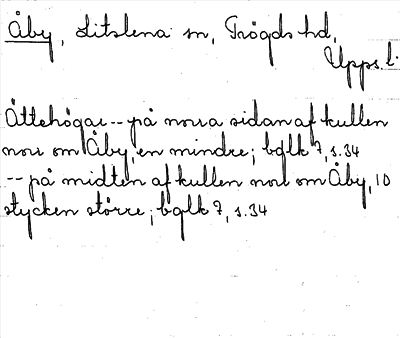 Åby, Litslena sn, Trögds hd,
Upps. l.
Ättehögar -- på norra sidan af kullen
norr om Åby, en mindre; bglk 7, s. 34
-- på midten af kullen norr om Åby, 10
stycken större; bglk 7, s. 34